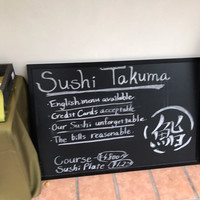 Sushi Takuma
· English menu available
· Credit Cards acceptable
· Our Sushi unforgettable
· The bills reasonable
鮨
Course
Sushi Plate